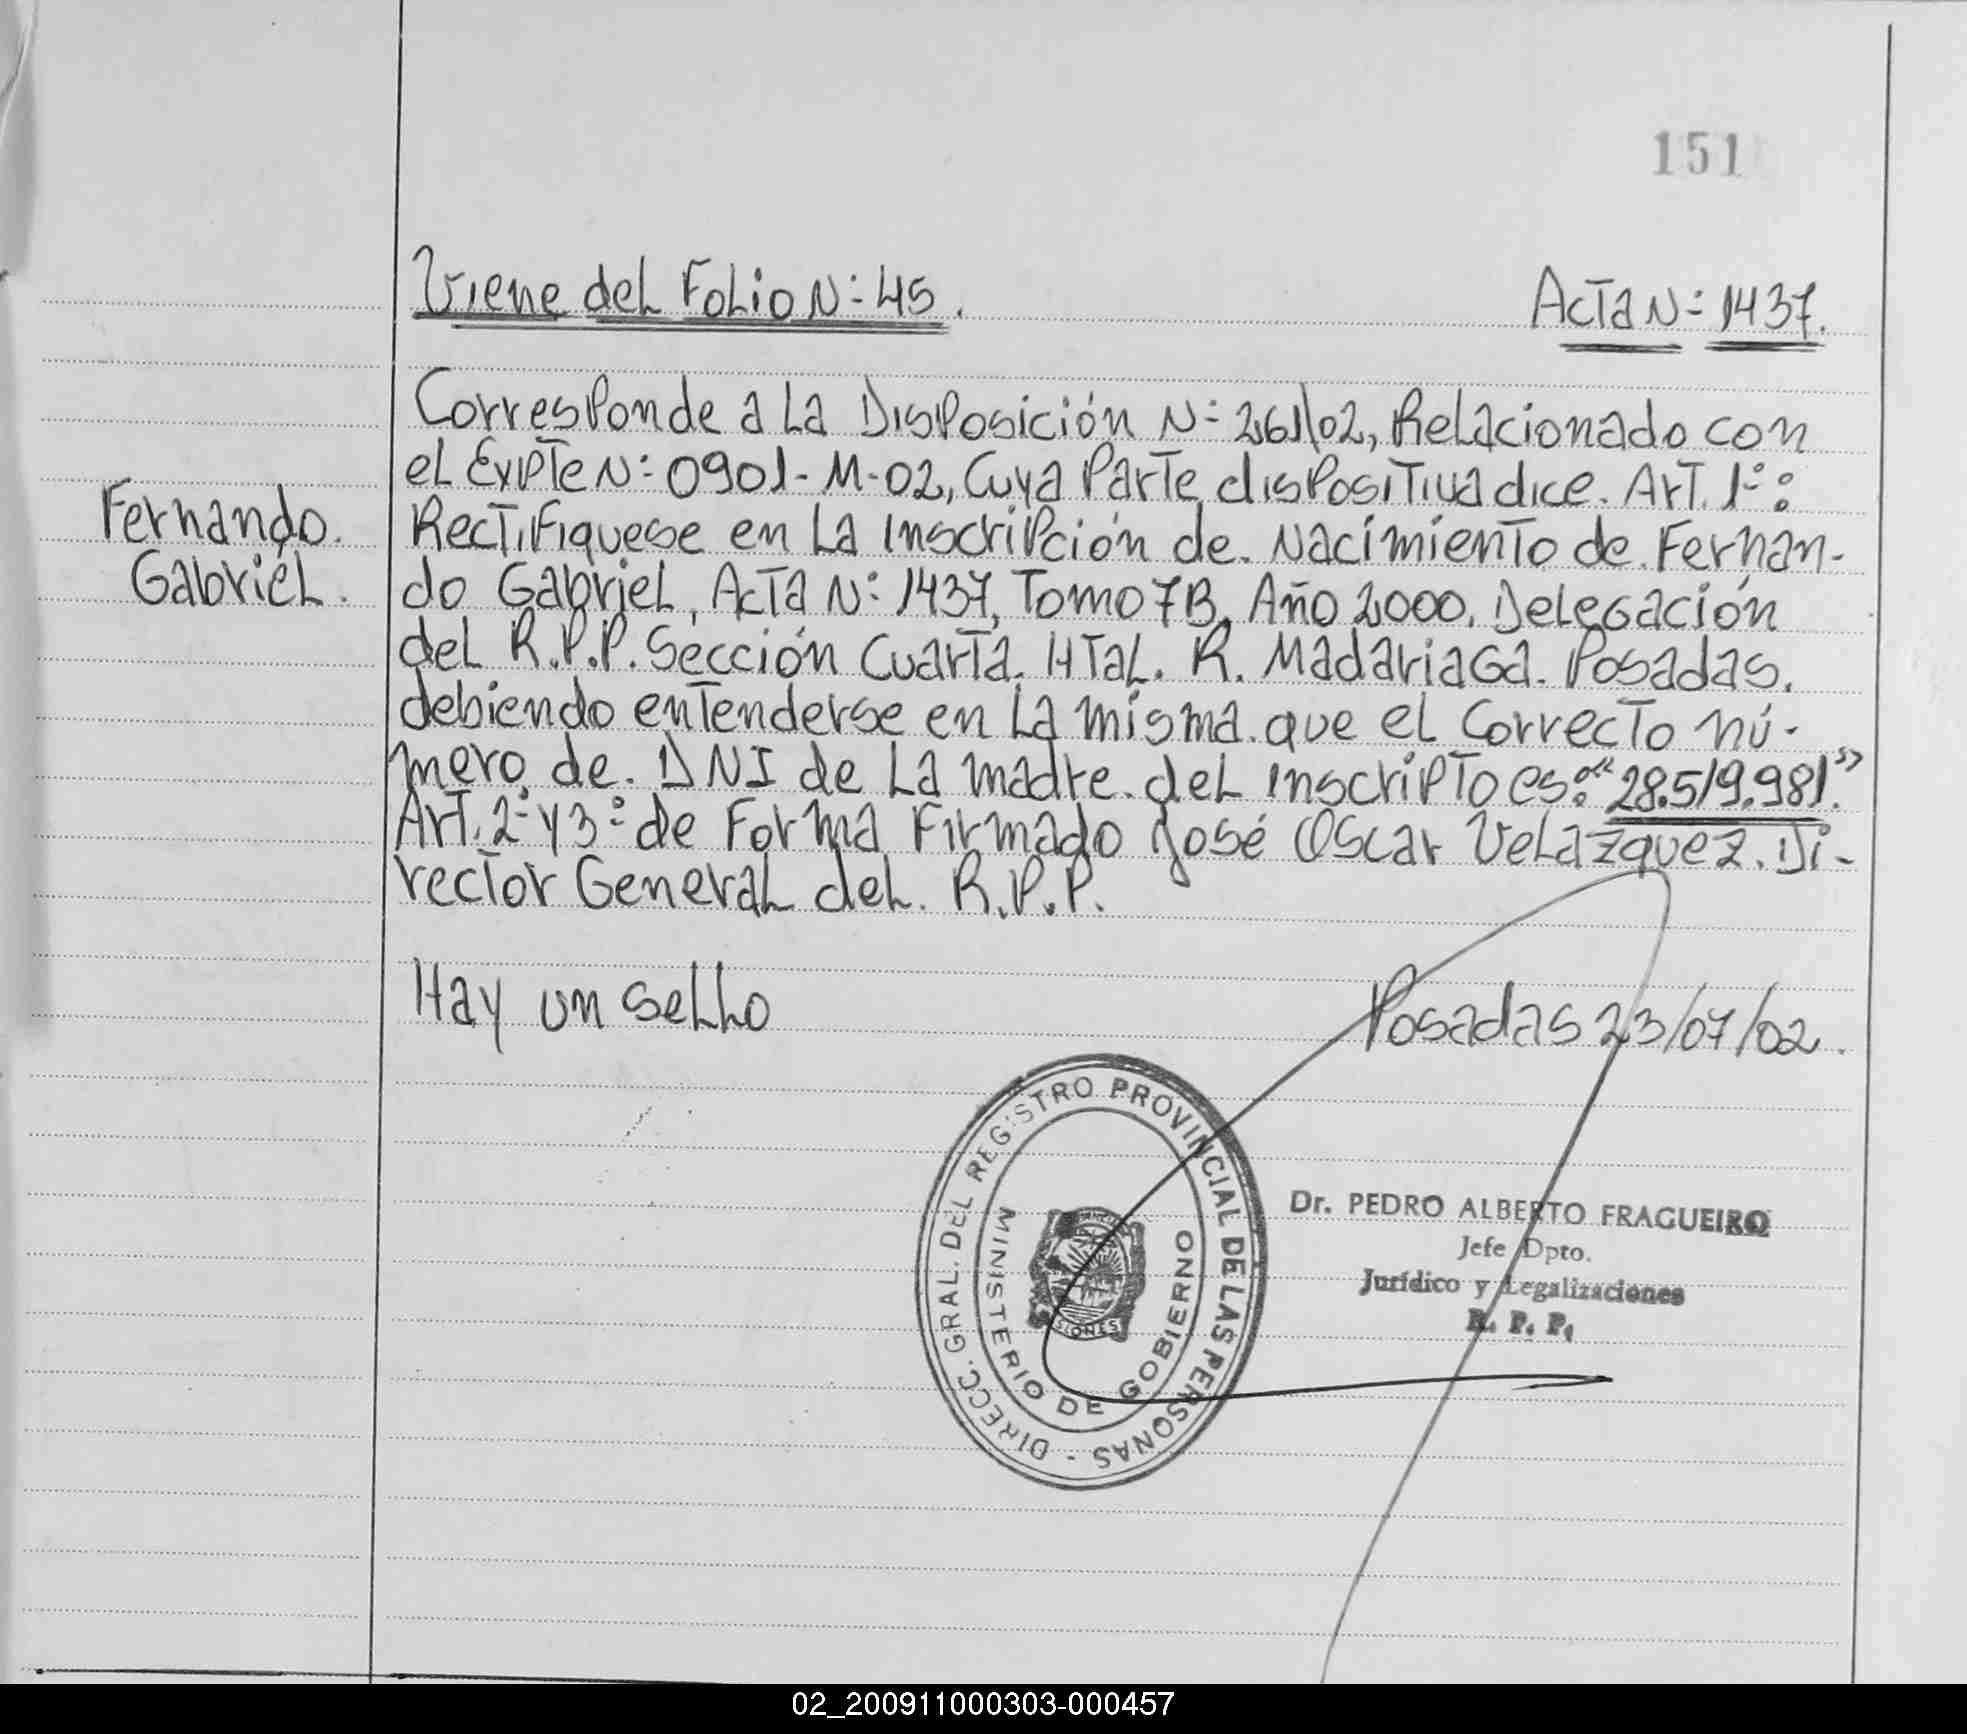 151
Viene del Folio N: 45.
Acta N: 1437.
Corresponde a La Disposición N: 261/02, Relacionado con
el Expte N: 0901-M-02, Cuya Parte dispositiva dice. Art. 1°:
Fernando.
Rectifiquese en La Inscripción de Nacimiento de Fernan-
Gabriel.
do Gabriel, Acta N: 1437, Tomo 7B, Año 2000. Delegación
del R.P.P. Sección Cuarta. HTal. R. Madariaga. Posadas.
debiendo entenderse en La misma que el Correcto nú-
mero de DNI de La madre del inscripto es: "28.519.981."
Art. 2° y 3° de Forma Firmado José Oscar Velazquez. Di-
rector General del R.P.P.
Hay un sello
Posadas 23/07/02.
DIRECC. GRAL. DEL REGISTRO PROVINCIAL DE LAS PERSONAS -
MINISTERIO DE GOBIERNO
Dr. PEDRO ALBERTO FRAGUEIRO
Jefe Dpto.
Jurídico y Legalizaciones
R. P. P.
02_200911000303-000457